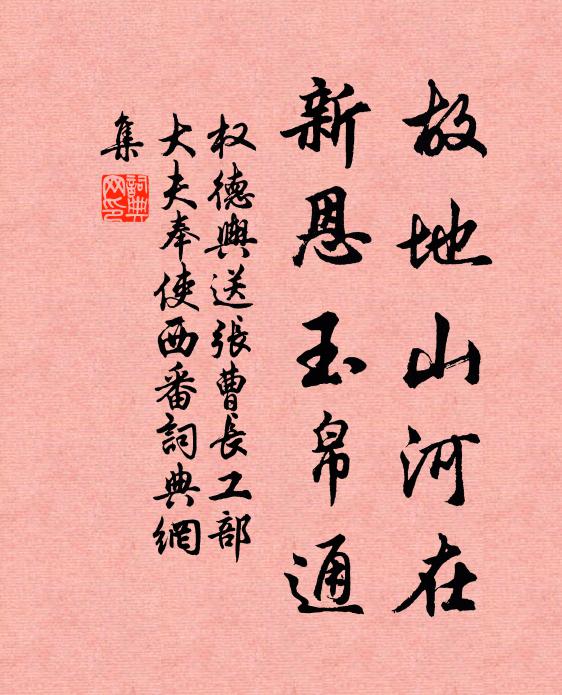 故地山河在
新恩玉帛通
权德輿送張曹長工部
大夫奉使西番詞典網
集
詞典
网印